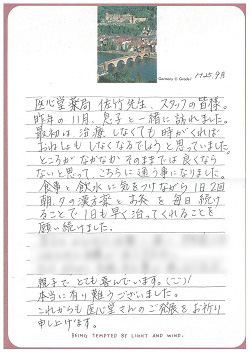 Germany © Gradel
H25.9月
医心堂薬局 佐竹先生、スタッフの皆様。
昨年の11月、息子と一緒に訪れました。
最初は、治療しなくても時がくれば
おねしょもしなくなるでしょうと思っていました。
ところがなかなかそのままでは良くなら
ないと思って、こちらに通う事になりました。
食事と飲水に気をつけながら1日2回
朝、夕の漢方薬とお灸を毎日続け
ることで1日も早く治ってくれることを
願い続けました。
親子でとても喜んでいます。(ニコ)
本当に有り難うございました。
これからも医心堂さんのご発展をお祈り
申し上げます。
BEING TEMPTED BY LIGHT AND WIND.